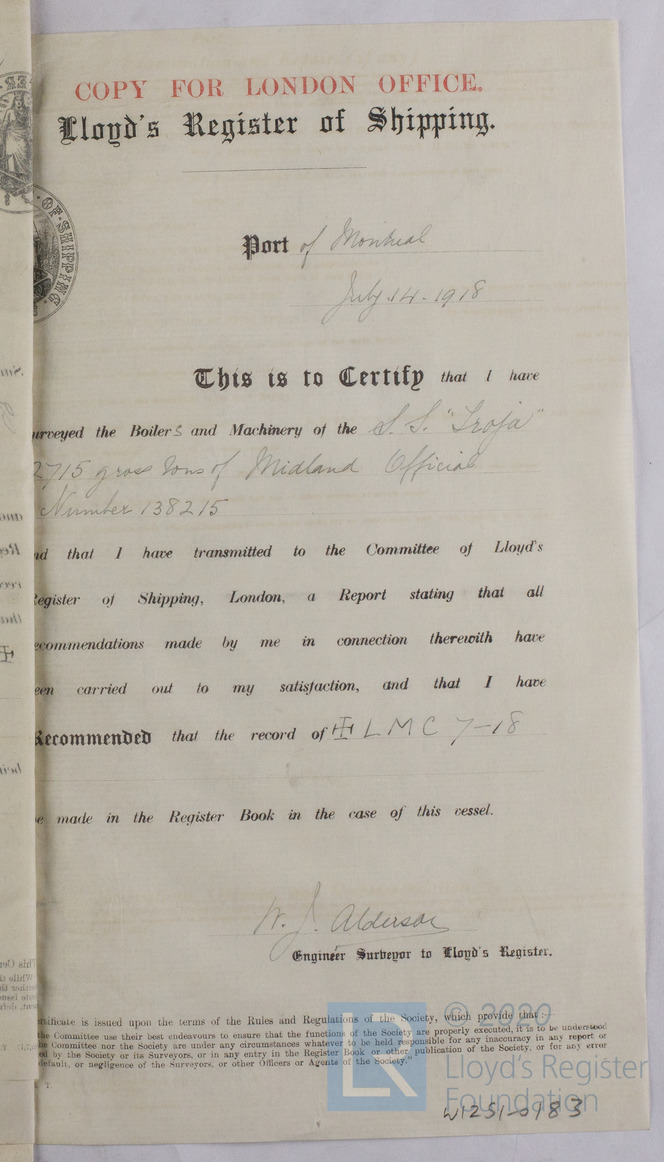 COPY FOR LONDON OFFICE.
Lloyd's Register of Shipping.
OF SHIPPING
Port of Montreal
July 14 - 1918
This is to Certify that I have
urveyed the Boilers and Machinery of the S.S. "Troja"
2715 gross tons of Midland Official
Number 138215
nd that I have transmitted to the Committee of Lloyd's
Register of Shipping, London, a Report stating that all
ecommendations made by me in connection therewith have
een carried out to my satisfaction, and that I have
Recommended that the record of ✠ L M C 7-18
e made in the Register Book in the case of this vessel.
W. J. Alderson
Engineer Surveyor to Lloyd's Register.
ertificate is issued upon the terms of the Rules and Regulations of the Society, which provide that:-
the Committee use their best endeavours to ensure that the functions of the Society are properly executed, it is to be understood
he Committee nor the Society are under any circumstances whatever to be held responsible for any inaccuracy in any report or
ed by the Society or its Surveyors, or in any entry in the Register Book or other publication of the Society, or for any error
default, or negligence of the Surveyors, or other Officers or Agents of the Society."
T.
© 2020
Lloyd's Register
Foundation
W1251-0183